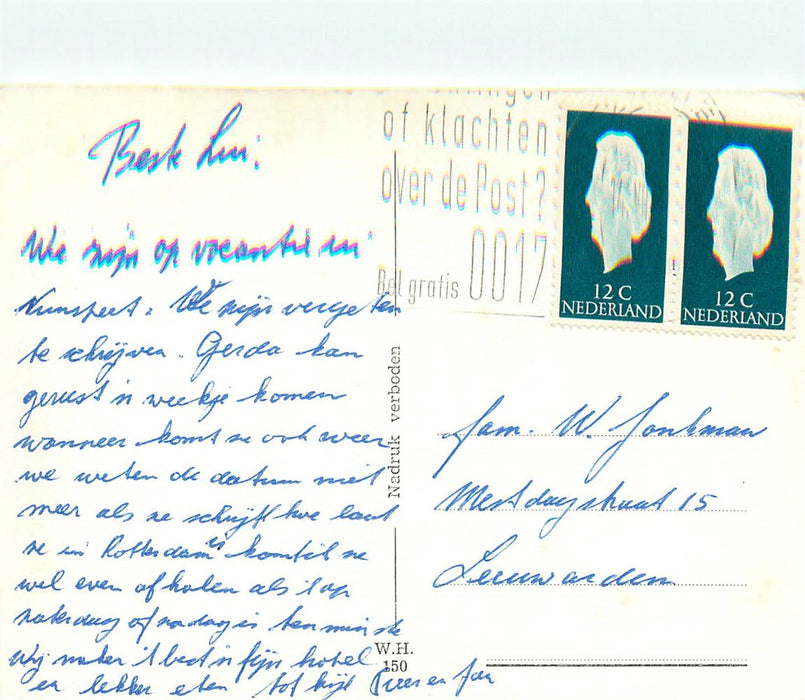 of klachten
over de Post?
Bel gratis 0017
12 C
NEDERLAND
12 C
NEDERLAND
Beste Lui:
We zijn op vacantie in
Nunspeet. We zijn vergeten
te schrijven. Gerda kan
gerust 'n weekje komen
wanneer komt ze ook weer
we weten de datum niet
meer als ze schrijft hoe laat
ze in Rotterdam is komt ze
wel even afhalen als 't op
zaterdag of zondag is ten minste
Wij maken 't best 'n fijn hotel
en lekker eten tot kijk en Jan
Nadruk verboden
W.H.
150
fam. W. Jonkman
Mestdagstraat 15
Leeuwarden